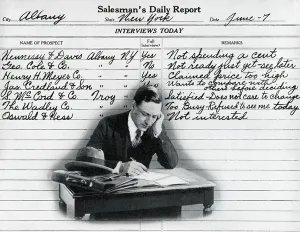 Salesman's Daily Report
City, Albany State New York Date June-7
INTERVIEWS TODAY
NAME OF PROSPECT Full Interview? REMARKS
Hennessy & Davis Albany NY Yes Not spending a cent
Geo. Cole & Co. " " No Not ready just yet-see later
Henry H. Meyes Co. " " Yes Claimed price too high
Jas. Credland & Son " " Yes Wants to confer with others before deciding
Cord & Co. Troy " Yes Satisfied-Does not care to change
The Wadley Co. " " No Too Busy-Refused to see me today
Oswald & Ress " " Yes Not interested